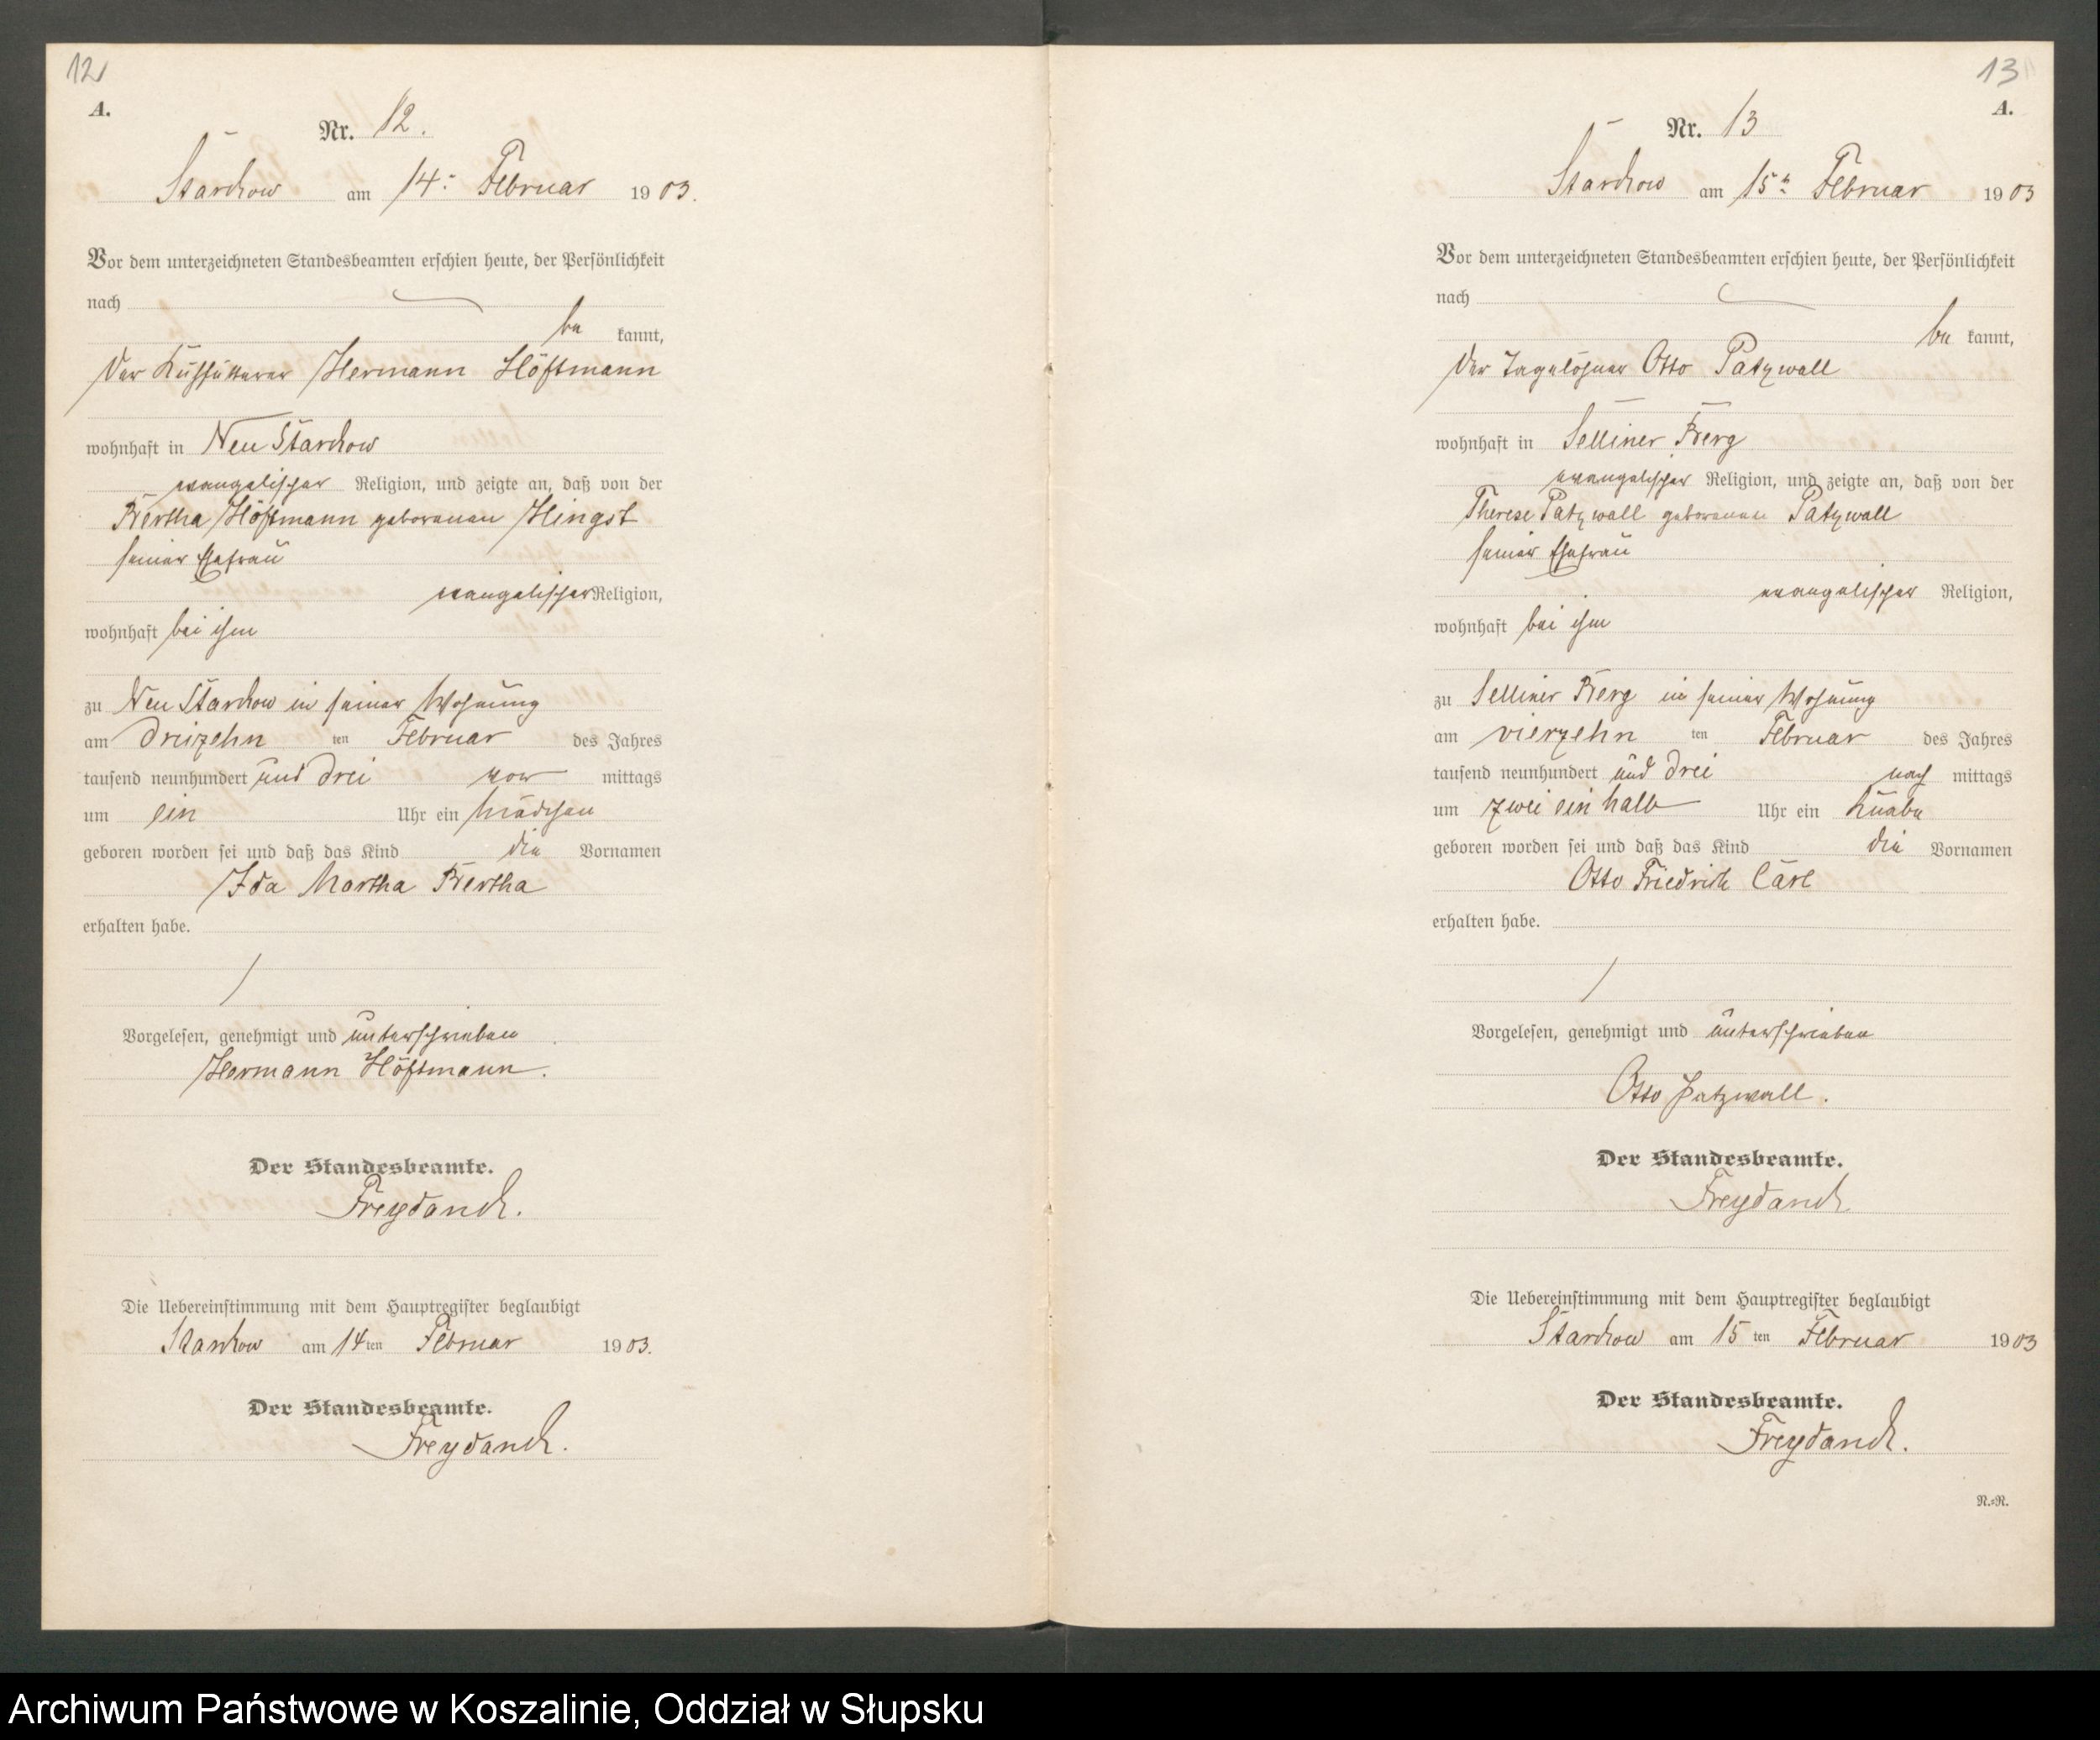 12
A.
Nr. 12.
Starckow am 14ᵗ Februar 1903.
Vor dem unterzeichneten Standesbeamten erschien heute, der Persönlichkeit
nach
be kannt,
der Kuhfütterer Hermann Höftmann
wohnhaft in Neu Starckow
evangelischer Religion, und zeigte an, daß von der
Bertha Höftmann geborenen Hingst
seiner Ehefrau
evangelischer Religion,
wohnhaft bei ihm
zu Neu Starckow in seiner Wohnung
am dreizehn ten Februar des Jahres
tausend neunhundert und drei vor mittags
um ein Uhr ein Mädchen
geboren worden sei und daß das Kind die Vornamen
Ida Martha Bertha
erhalten habe.
Vorgelesen, genehmigt und unterschrieben
Hermann Höftmann.
Der Standesbeamte.
Freydanck.
Die Uebereinstimmung mit dem Hauptregister beglaubigt
Starckow am 14ten Februar 1903.
Der Standesbeamte.
Freydanck.
13
A.
Nr. 13
Starckow am 15ᵗ Februar 1903
Vor dem unterzeichneten Standesbeamten erschien heute, der Persönlichkeit
nach
be kannt,
der Tagelöhner Otto Patzwall
wohnhaft in Selliner Berg
evangelischer Religion, und zeigte an, daß von der
Therese Patzwall geborenen Patzwall
seiner Ehefrau
evangelischer Religion,
wohnhaft bei ihm
zu Selliner Berg in seiner Wohnung
am vierzehn ten Februar des Jahres
tausend neunhundert und drei nach mittags
um zwei ein halb Uhr ein Knabe
geboren worden sei und daß das Kind die Vornamen
Otto Friedrich Carl
erhalten habe.
Vorgelesen, genehmigt und unterschrieben
Otto Patzwall.
Der Standesbeamte.
Freydanck
Die Uebereinstimmung mit dem Hauptregister beglaubigt
Starckow am 15 ten Februar 1903
Der Standesbeamte.
Freydanck.
N.=R.
Archiwum Państwowe w Koszalinie, Oddział w Słupsku